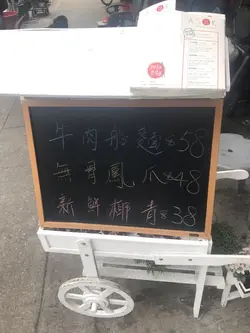 牛肉船麵$58
無骨鳳爪$48
新鮮椰青$38